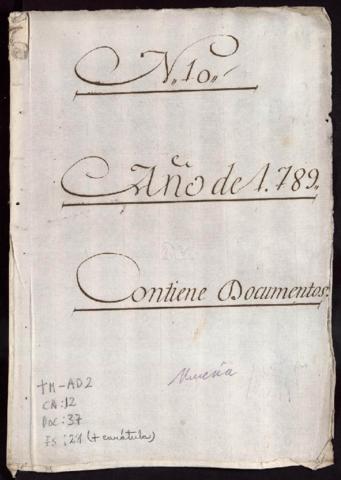 N. 10.
Año de 1.789.
Contiene Documentos.
TM-AD2
CA:12
Doc:37
FS:21 (+ carátula)